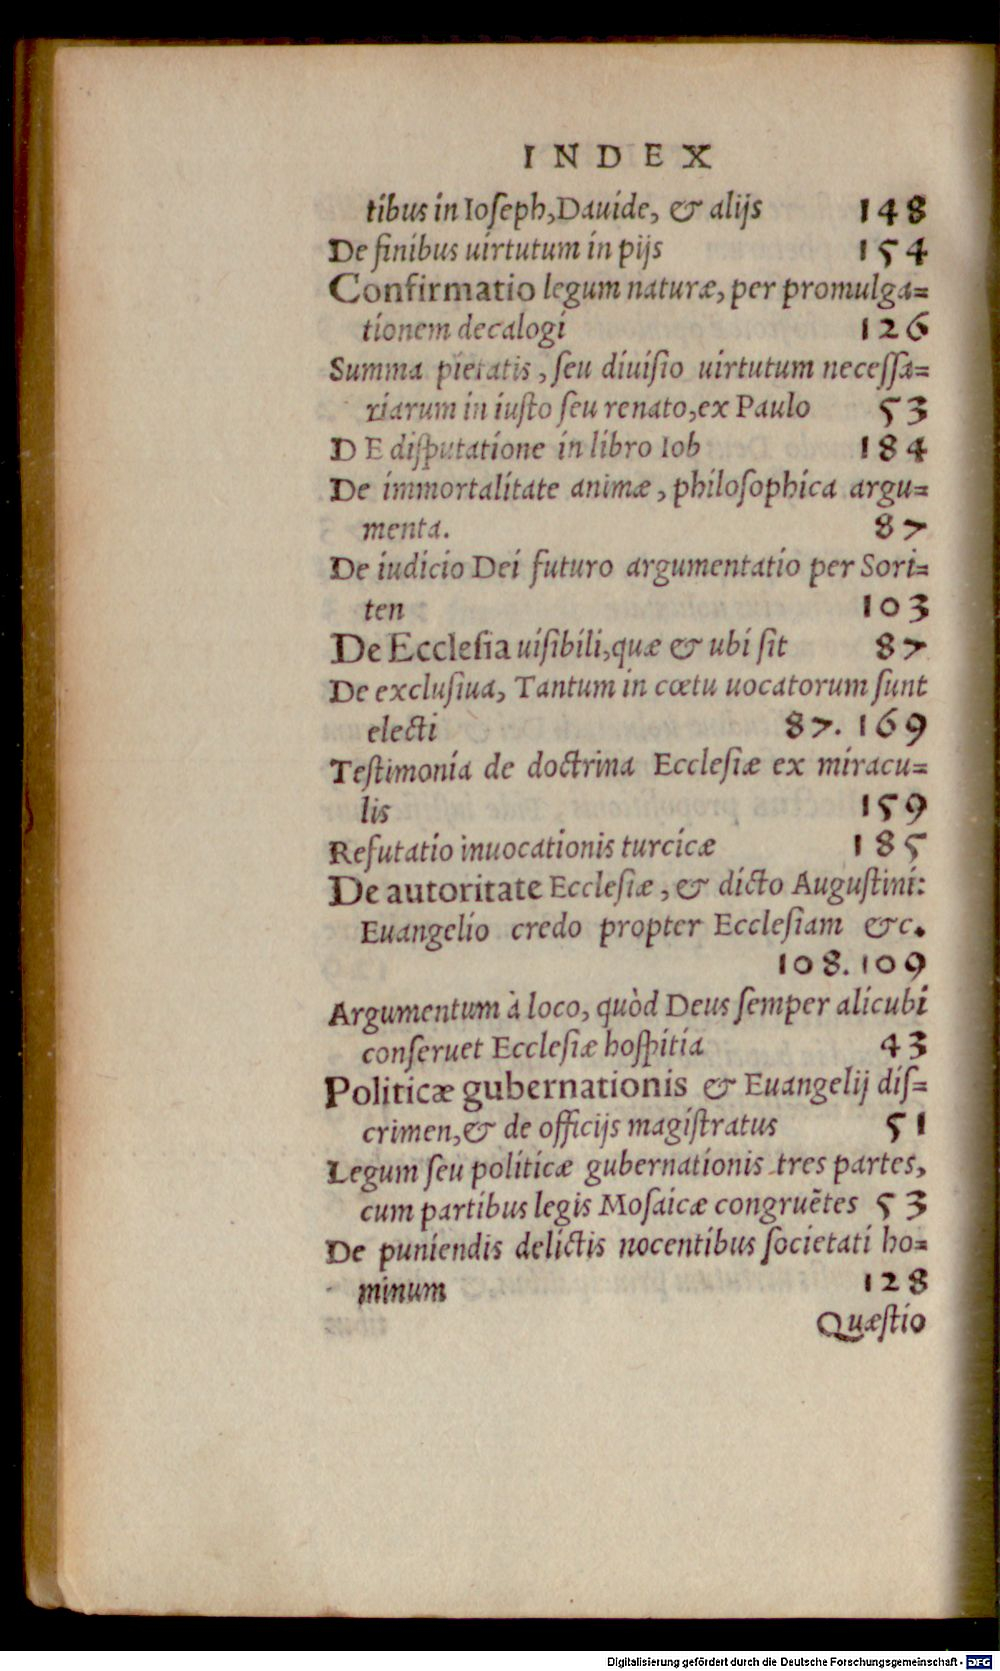 INDEX
tibus in Ioſeph, Dauide, & alijs 148
De finibus uirtutum in pijs 154
Confirmatio legum naturæ, per promulga=
tionem decalogi 126
Summa pietatis, ſeu diuiſio uirtutum neceſſa=
riarum in iuſto ſeu renato, ex Paulo 53
DE diſputatione in libro Iob 184
De immortalitate animæ, philoſophica argu=
menta. 87
De iudicio Dei futuro argumentatio per Sori=
ten 103
De Eccleſia uiſibili, quæ & ubi ſit 87
De excluſiua, Tantum in cœtu uocatorum ſunt
electi 87. 169
Teſtimonia de doctrina Eccleſiæ ex miracu=
lis 159
Refutatio inuocationis turcicæ 185
De autoritate Eccleſiæ, & dicto Auguſtini:
Euangelio credo propter Eccleſiam &c.
108. 109
Argumentum à loco, quòd Deus ſemper alicubi
conſeruet Eccleſiæ hoſpitia 43
Politicæ gubernationis & Euangelij diſ=
crimen, & de officijs magiſtratus 51
Legum ſeu politicæ gubernationis tres partes,
cum partibus legis Moſaicæ congruẽtes 53
De puniendis delictis nocentibus ſocietati ho=
minum 128
Quæſtio
Digitalisierung gefördert durch die Deutsche Forschungsgemeinschaft - DFG